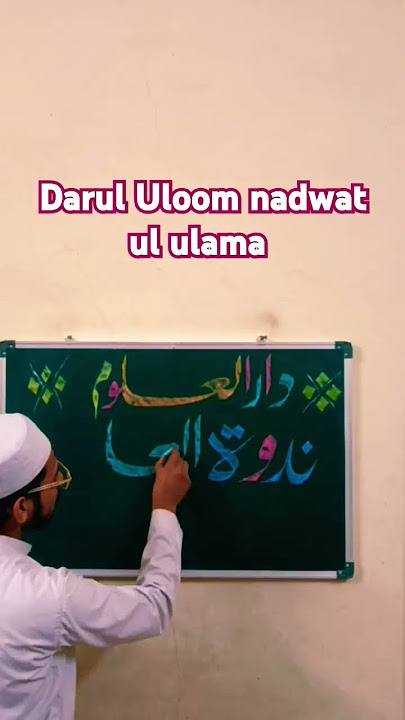 Darul Uloom nadwat
ul ulama
دارالعلوم
ندوة العا